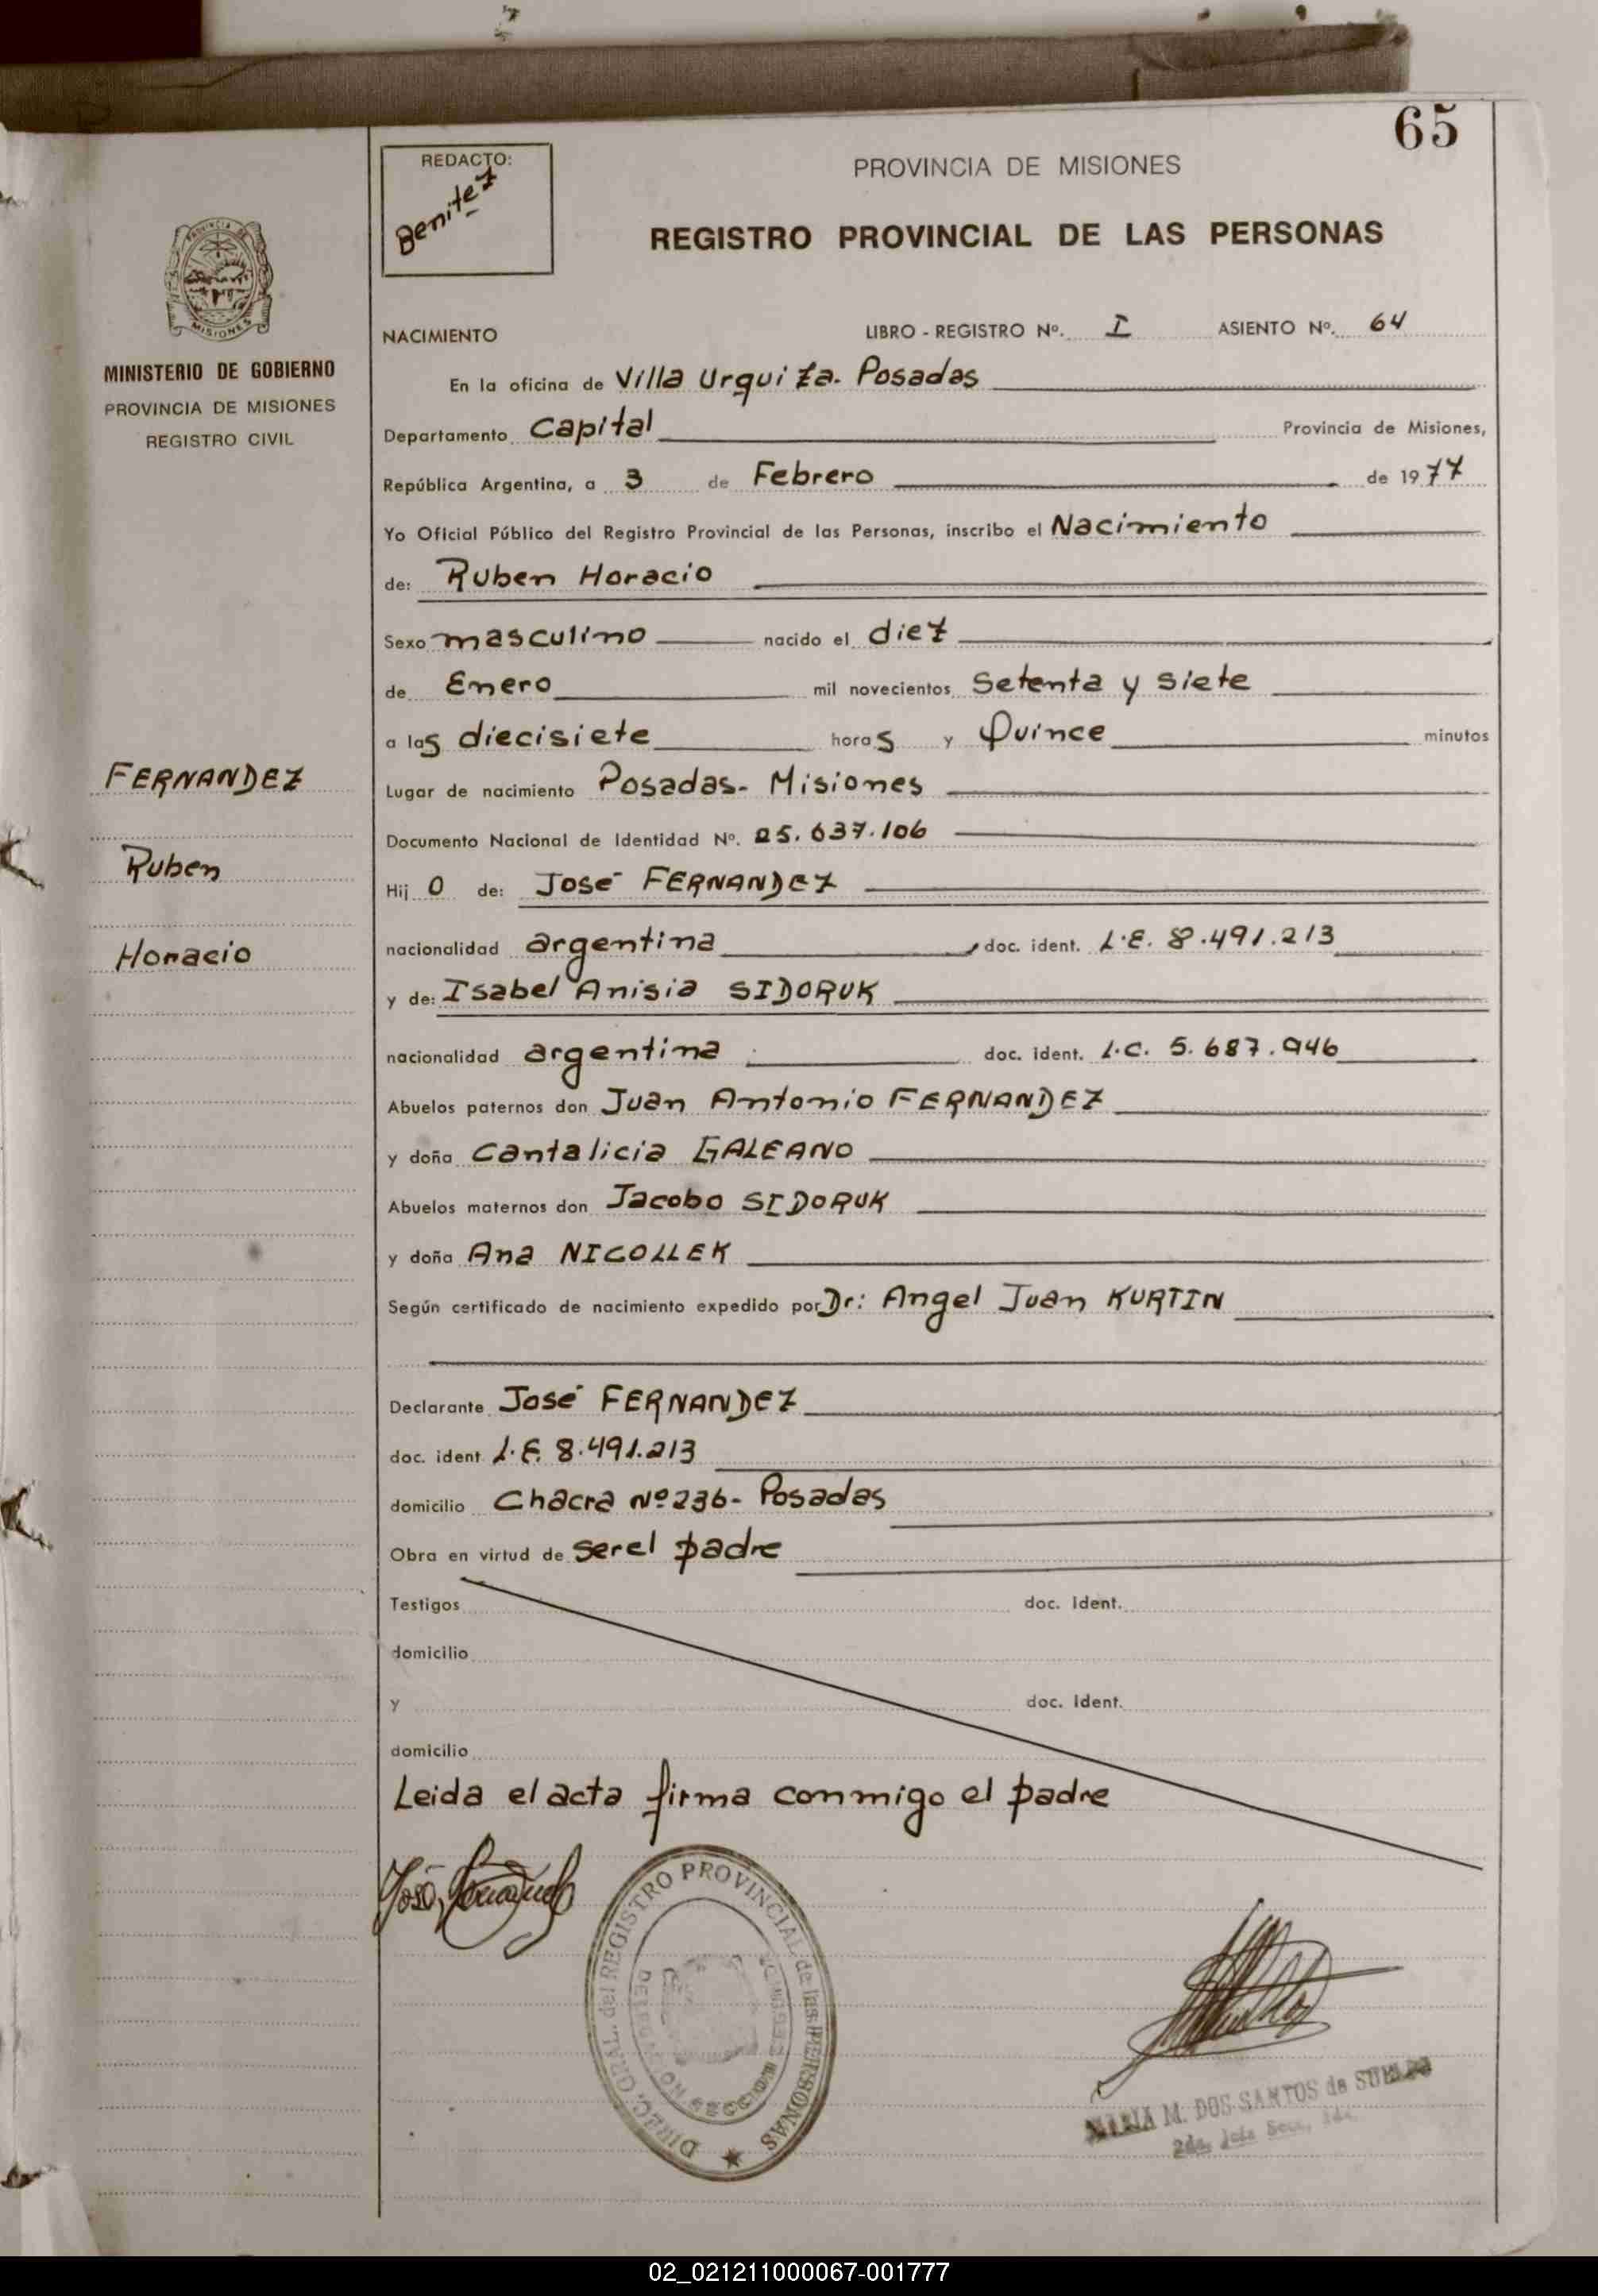 65
REDACTO:
Benitez
PROVINCIA DE MISIONES
REGISTRO PROVINCIAL DE LAS PERSONAS
MISIONES
MINISTERIO DE GOBIERNO
PROVINCIA DE MISIONES
REGISTRO CIVIL
NACIMIENTO LIBRO - REGISTRO Nº. I ASIENTO Nº. 64
En la oficina de Villa Urquiza. Posadas
Departamento Capital Provincia de Misiones,
República Argentina, a 3 de Febrero de 1977
Yo Oficial Público del Registro Provincial de las Personas, inscribo el Nacimiento
de: Ruben Horacio
Sexo masculino nacido el diez
de Enero mil novecientos Setenta y siete
a las diecisiete horas y Quince minutos
FERNANDEZ
Ruben
Horacio
Lugar de nacimiento Posadas- Misiones
Documento Nacional de Identidad Nº. 25.637.106
Hijo de: José FERNANDEZ
nacionalidad argentina doc. ident. L.E. 8.491.213
y de: Isabel Anisia SIDORUK
nacionalidad argentina doc. ident. L.C. 5.687.946
Abuelos paternos don Juan Antonio FERNANDEZ
y doña Cantalicia GALEANO
Abuelos maternos don Jacobo SIDORUK
y doña Ana NICOLLEK
Según certificado de nacimiento expedido por Dr: Angel Juan KURTIN
Declarante José FERNANDEZ
doc. ident L.E. 8.491.213
domicilio Chacra Nº 236- Posadas
Obra en virtud de ser el padre
Testigos doc. ident.
domicilio
y doc. ident.
domicilio
Leida el acta firma conmigo el padre
José
DIREC. GRAL. del REGISTRO PROVINCIAL de las PERSONAS
DELEGACION SECCION
MARIA M. DOS SANTOS de
2da. Jefe Secc.
02_021211000067-001777